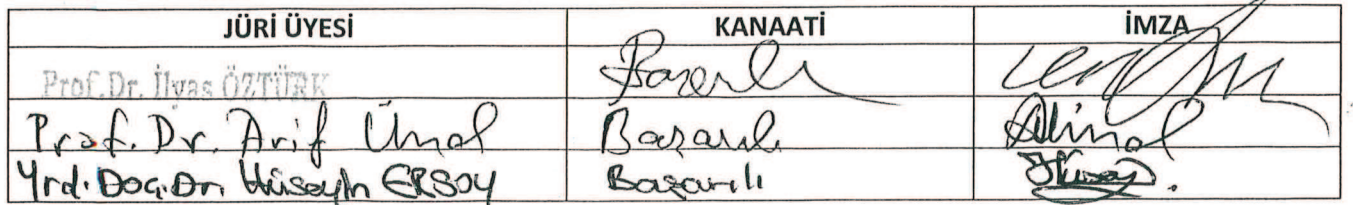 JÜRİ ÜYESİ KANAATİ İMZA
Prof.Dr. İlyas ÖZTÜRK Başarılı
Prof. Dr. Arif Ünal Başarılı
Yrd. Doç. Dr. Hüseyin ERSOY Başarılı